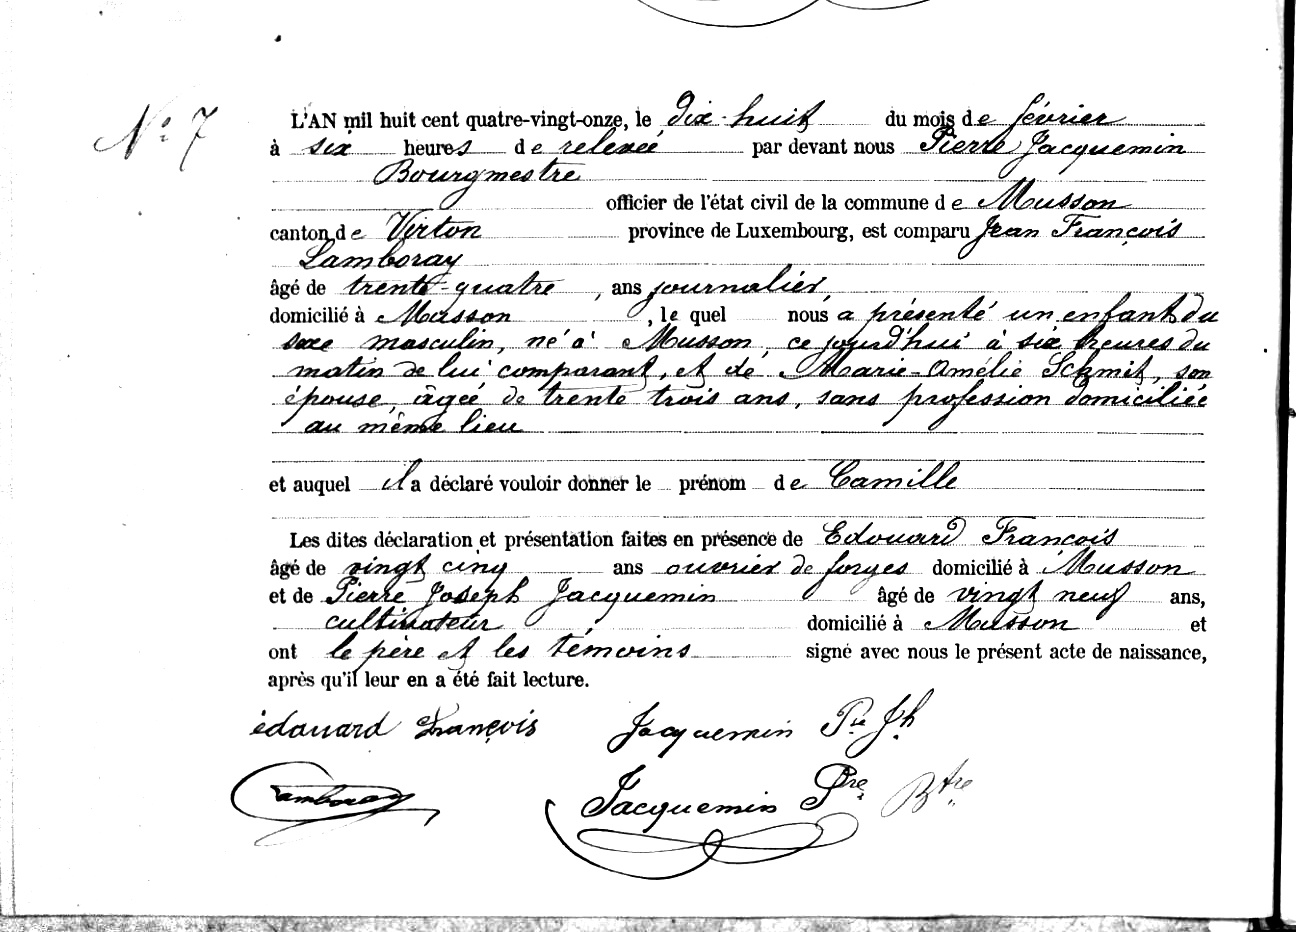 N° 7
L'AN mil huit cent quatre-vingt-onze, le dix-huit du mois de février
à six heures de relevée par devant nous Pierre Jacquemin
Bourgmestre
officier de l'état civil de la commune de Musson
canton de Virton province de Luxembourg, est comparu Jean François
Lamboray
âgé de trente-quatre, ans journalier,
domicilié à Musson, le quel nous a présenté un enfant du
sexe masculin, né à Musson, ce jourd'hui à six heures du
matin de lui comparant, et de Marie-Amélie Schmit, son
épouse, âgée de trente trois ans, sans profession domiciliée
au même lieu
et auquel il a déclaré vouloir donner le prénom de Camille
Les dites déclaration et présentation faites en présence de Edouard François
âgé de vingt cinq ans ouvrier de forges domicilié à Musson
et de Pierre Joseph Jacquemin âgé de vingt neuf ans,
cultivateur domicilié à Musson et
ont le père et les témoins signé avec nous le présent acte de naissance,
après qu'il leur en a été fait lecture.
édouard François Jacquemin Pre Jh
Lamboray Jacquemin Pre Btre